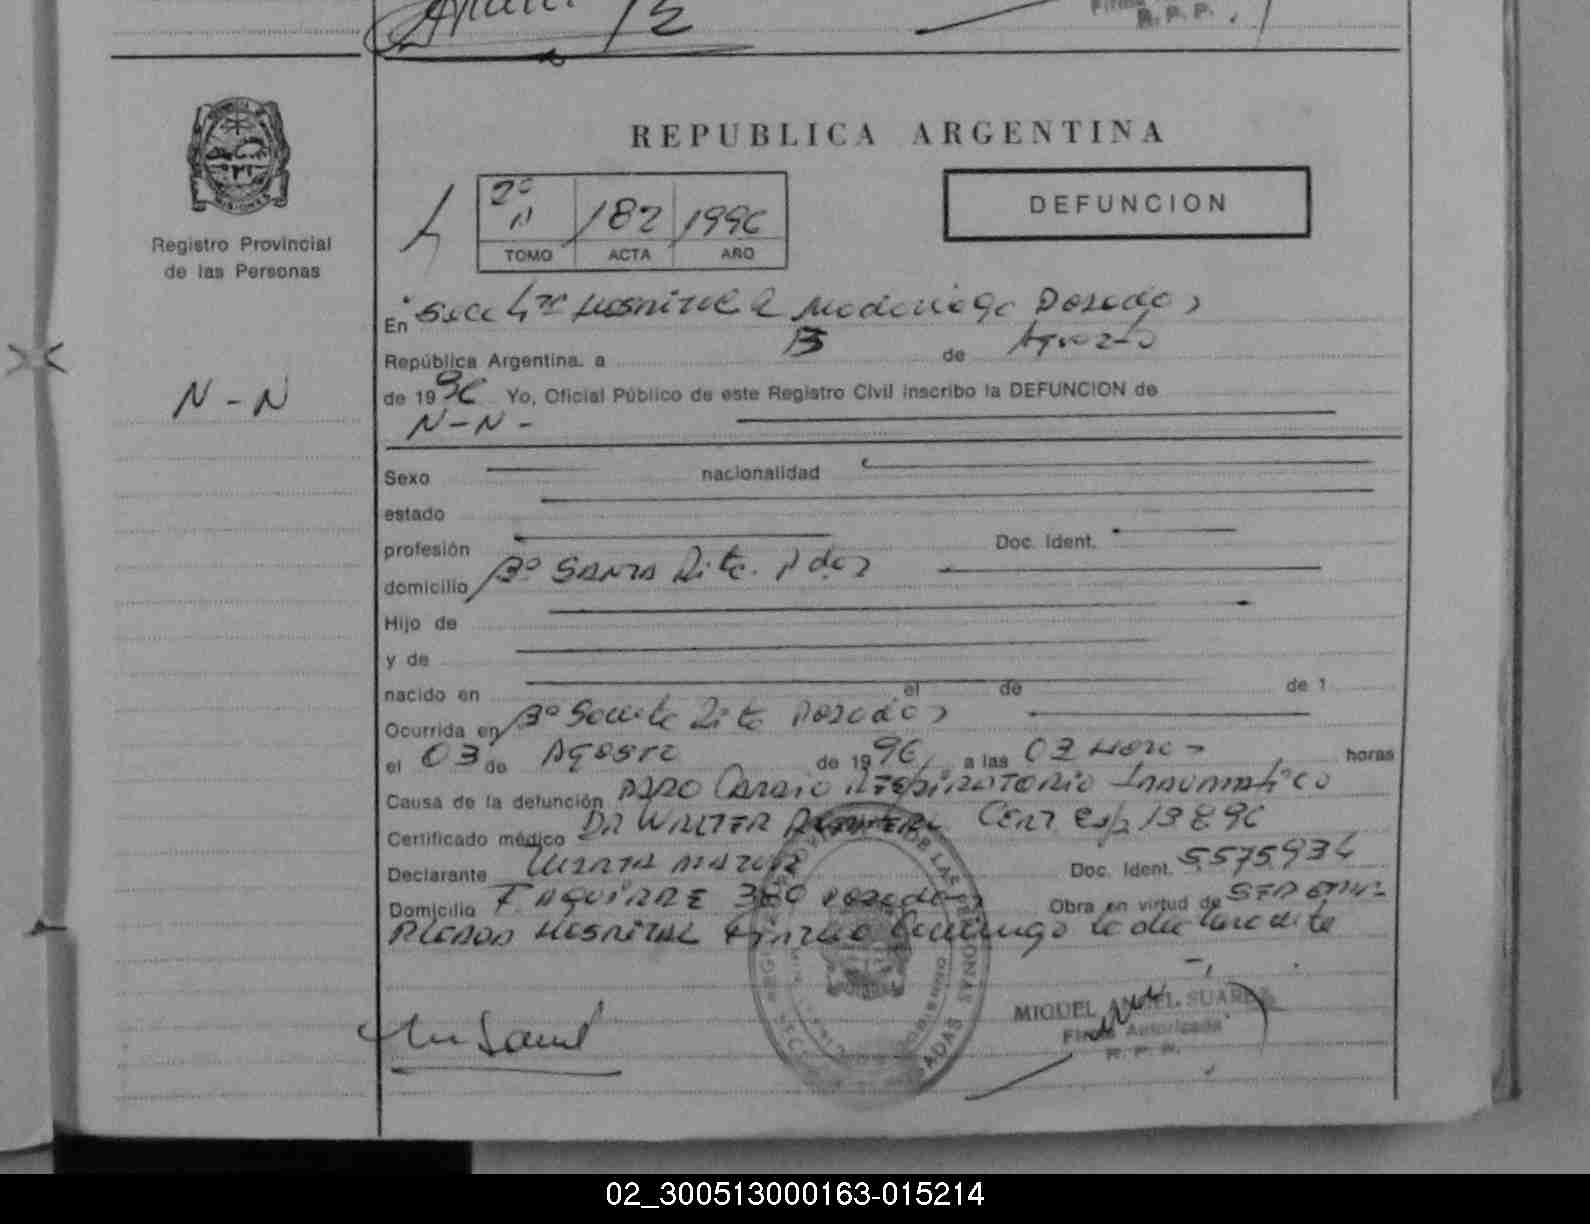 REPUBLICA ARGENTINA
DEFUNCION
Registro Provincial
de las Personas
2º
182 1996
TOMO ACTA AÑO
En Secc 4ta Hospital R Madariaga Posadas
República Argentina. a 13 de Agosto
de 1996 Yo, Oficial Público de este Registro Civil inscribo la DEFUNCION de
N-N
N-N-
Sexo nacionalidad
estado
profesión Doc. Ident.
domicilio Bº Santa Rita. Pdas
Hijo de
y de
nacido en el de de 1
Ocurrida en Bº Santa Rita Posadas
el 03 de Agosto de 1996 a las 03 Horas horas
Causa de la defunción PARO Cardio RESPIRATORIO Traumático
Certificado médico DR WALTER CERT Exp 13 8 96
Declarante Doc. Ident. 5575934
Domicilio F. AGUIRRE 380 Posadas Obra en virtud de
HOSPITAL
MIGUEL ANGEL SUAREZ
Firma Autorizada
R. P. P.
02_300513000163-015214